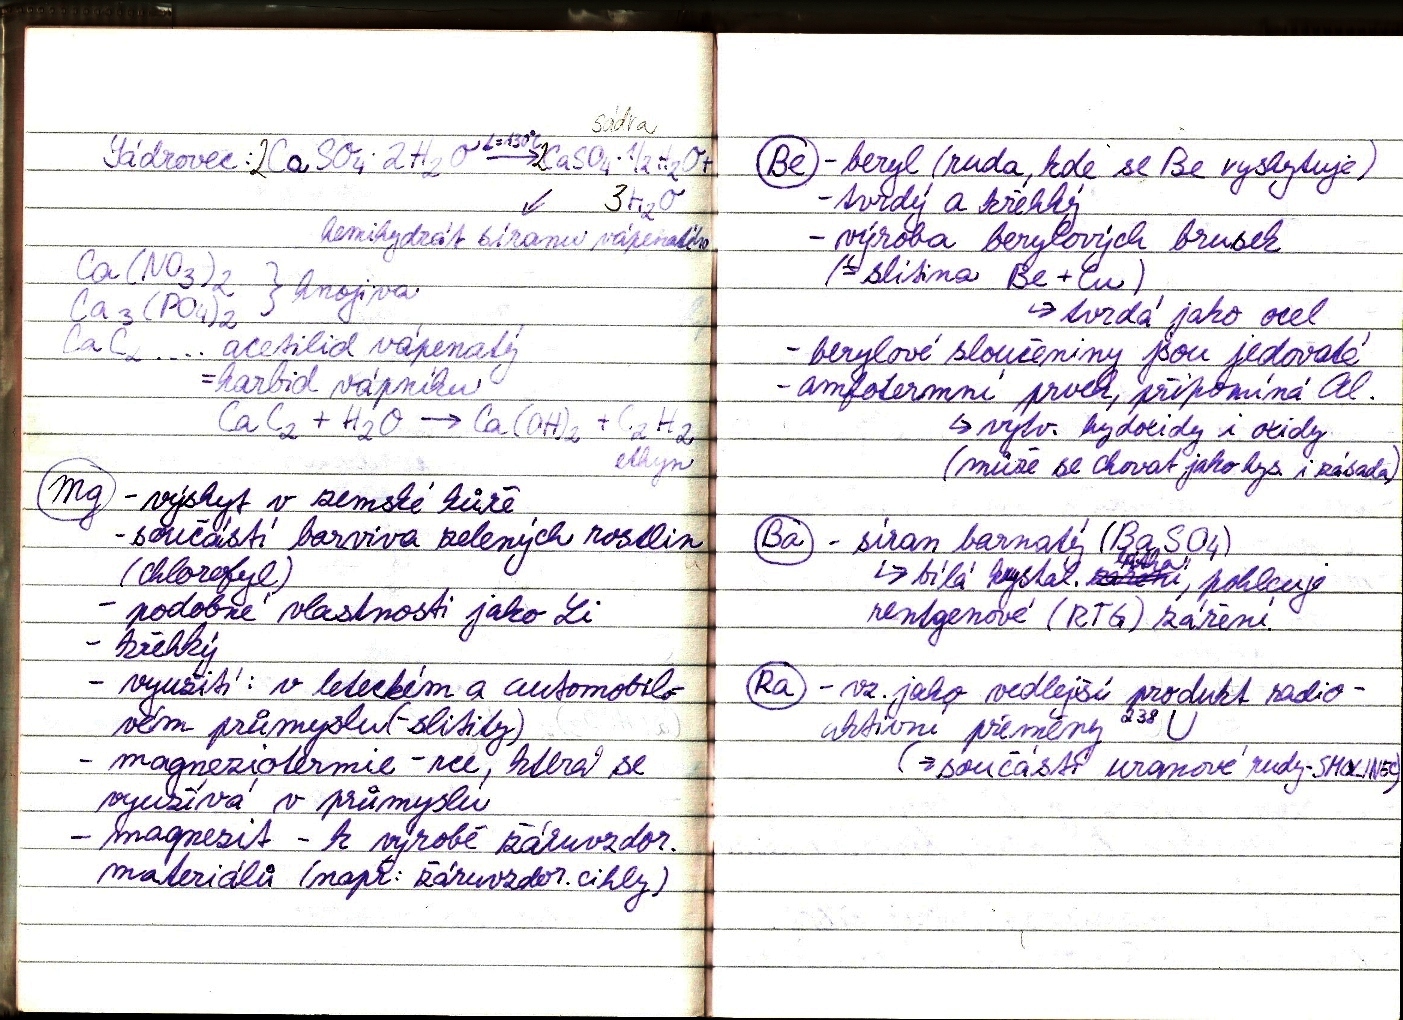 sádra
Sádrovec: 2CaSO4 · 2H2O t=130°C → 2CaSO4 · 1/2 H2O +
3H2O
↙
hemihydrát síranu vápenatého
Ca(NO3)2
} hnojiva
Ca3(PO4)2
CaC2 .... acetilid vápenatý
= karbid vápníku
CaC2 + H2O → Ca(OH)2 + C2H2
ethyn
Mg - výskyt v zemské kůře
- součástí barviva zelených rostlin
(chlorofyl)
- podobné vlastnosti jako Li
- křehký
- využití: v leteckém a automobilo-
vém průmyslu (-slitity)
- magneziotermie - rce, která se
využívá v průmyslu
- magnezit - k výrobě žáruvzdor.
materiálů (např: žáruvzdor. cihly)
Be - beryl (ruda, kde se Be vyskytuje)
- tvrdý a křehký
- výroba berylových brusek
(= slitina Be + Cu)
↳ tvrdá jako ocel
- berylové sloučeniny jsou jedovaté
- amfotermní prvek, připomíná Al.
↳ vytv. hydoxidy i oxidy
(může se chovat jako kys. i zásada)
Ba - síran barnatý (BaSO4)
látka
↳ bílá krystal. , pohlcuje
rentgenové (RTG) záření
Ra - vz. jako vedlejší produkt radio-
aktivní přeměny 238 U
(⇒ součástí uranové rudy - SMOLINEC)